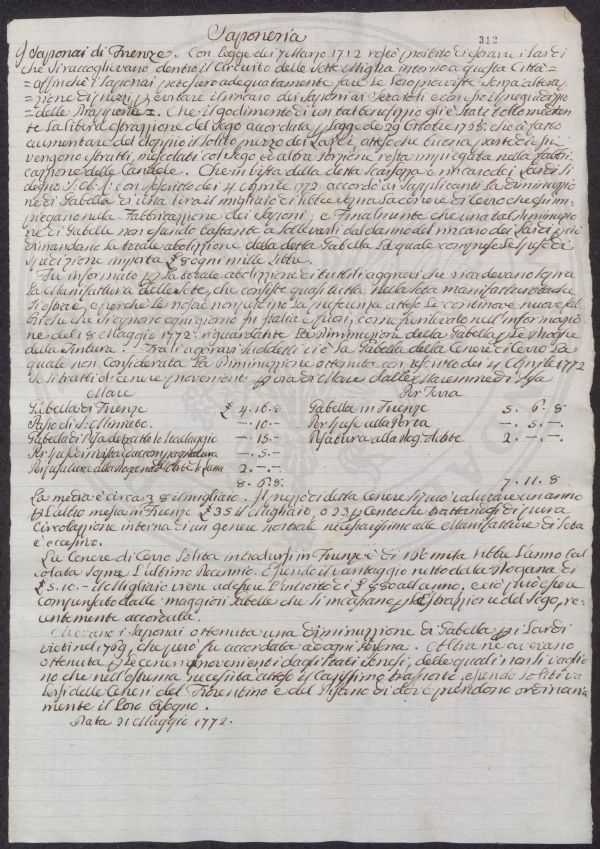 Saponeria
312
I Saponai di Firenze. Con Legge dei 7 Marzo 1712 restò proibito di estrarre i Lardi
che si raccoglievano dentro il Circuito delle Sette Miglia intorno a questa Città =
= affinchè i Saponai potessero adeguatamente fare le loro provviste senza altera=
=zione di prezzi, e evitare il rincaro dei Saponi ai
delle =. Che il godimento di un tal benefizio gli è stato tolto
te la libera estrazzione del Sego accordata Legge de 29 Ottobre 1768: che à fatto
aumentare del doppio il solito prezzo dei Lardi, atteso che buona parte di essi
vengono estratti, mescolati col Sego, e altra porzione resta impiegata nella fabbri=
cazzione delle Candele. Che in vista della detta scarsezza e rincaro dei Lardi si
degnò S. A. R. con rescritto dei 4 Aprile 1772 accordò ai Supplicanti la diminuzio
ne di Gabella di una lira il migliaio di libbre sopra la Cenere di Cerro che
piegano nella Fabbricazzione dei Saponi; e Finalmente che una tal diminuzio
ne di Gabelle non essendo bastante a sollevarli dal danno del rincaro dei Lardi, 
dimandano la totale abolizzione della detta Gabella, la quale comprese le spese di
spedizione importa £ 8 ogni mille libbre.
Fu informato la totale abolizzione di tutti li aggravi che ricadevano sopra
la Manifattura delle Sete, che consiste quasi tutta nella Seta manifatturata che
si estrae, e perchè le nostre non perdino la preferenza atteso le continove nuove fab=
briche che si erigono ogni giorno in Italia, e fuori, come fu rilevato nell'informazio
ne del 18 Maggio 1772: riguardante la diminuzione della Gabella le Droghe
della Tintura. Fra li aggravi suddetti ci è la Gabella della Cenere di Cerro la
quale non considerata la diminuzione ottenuta con rescritto dei 4 Aprile 1772
se si tratti di cenere proveniente dalle Maremme di Pisa
Mare
Per Terra
Gabella di Firenze £ 4. 16. 8 Gabella in Firenze 5. 6. 8
Passo di S. Miniato —. 10. — Per spese alla Porta —. 5. —
Gabella di Pisa detratto lo Scallaggio —. 15. — Pesatura alla 2. —. —
Per spese —. 5. —
Per pesatura alla 2. —. —
8. 6. 8. 7. 11. 8
La media è circa £ 8 il migliaio. Il prezzo di detta Cenere si può valutare un anno
per l'altro messa in Firenze £ 35 il migliaio, o 23 per Cento che trattandosi di pura
circolazzione interna di un genere nostrale necessarissimo alle Manifatture di Seta
è eccessivo.
La Cenere di Cerro solita introdursi in Firenze è di libbre l'anno cal
colata sopra l'ultimo Decennio. Essendo il vantaggio netto della Dogana di
£ 5. 10. — il Migliaio viene ad essere l'introito di £ 880 all'anno, e ciò può essere
compensato dalle maggiori Gabelle che si incassano l'Estrazzione del Sego, re=
centemente accordata.
i Saponai ottenuta una diminuzzione di Gabella i Lardi
vieti nel 1769, che però fu accordata ad ogni Persona. Altra ne avevano
ottenuta le ceneri provenienti dagli Stati Senesi, delle quali non si vaglio
no che nell'estrema necessità atteso il Carissimo trasporto, essendo soliti va
lersi delle Ceneri del Fiorentino e del Pisano di dove prendono ordinaria
mente il loro bisogno.
Data 21 Maggio 1772.